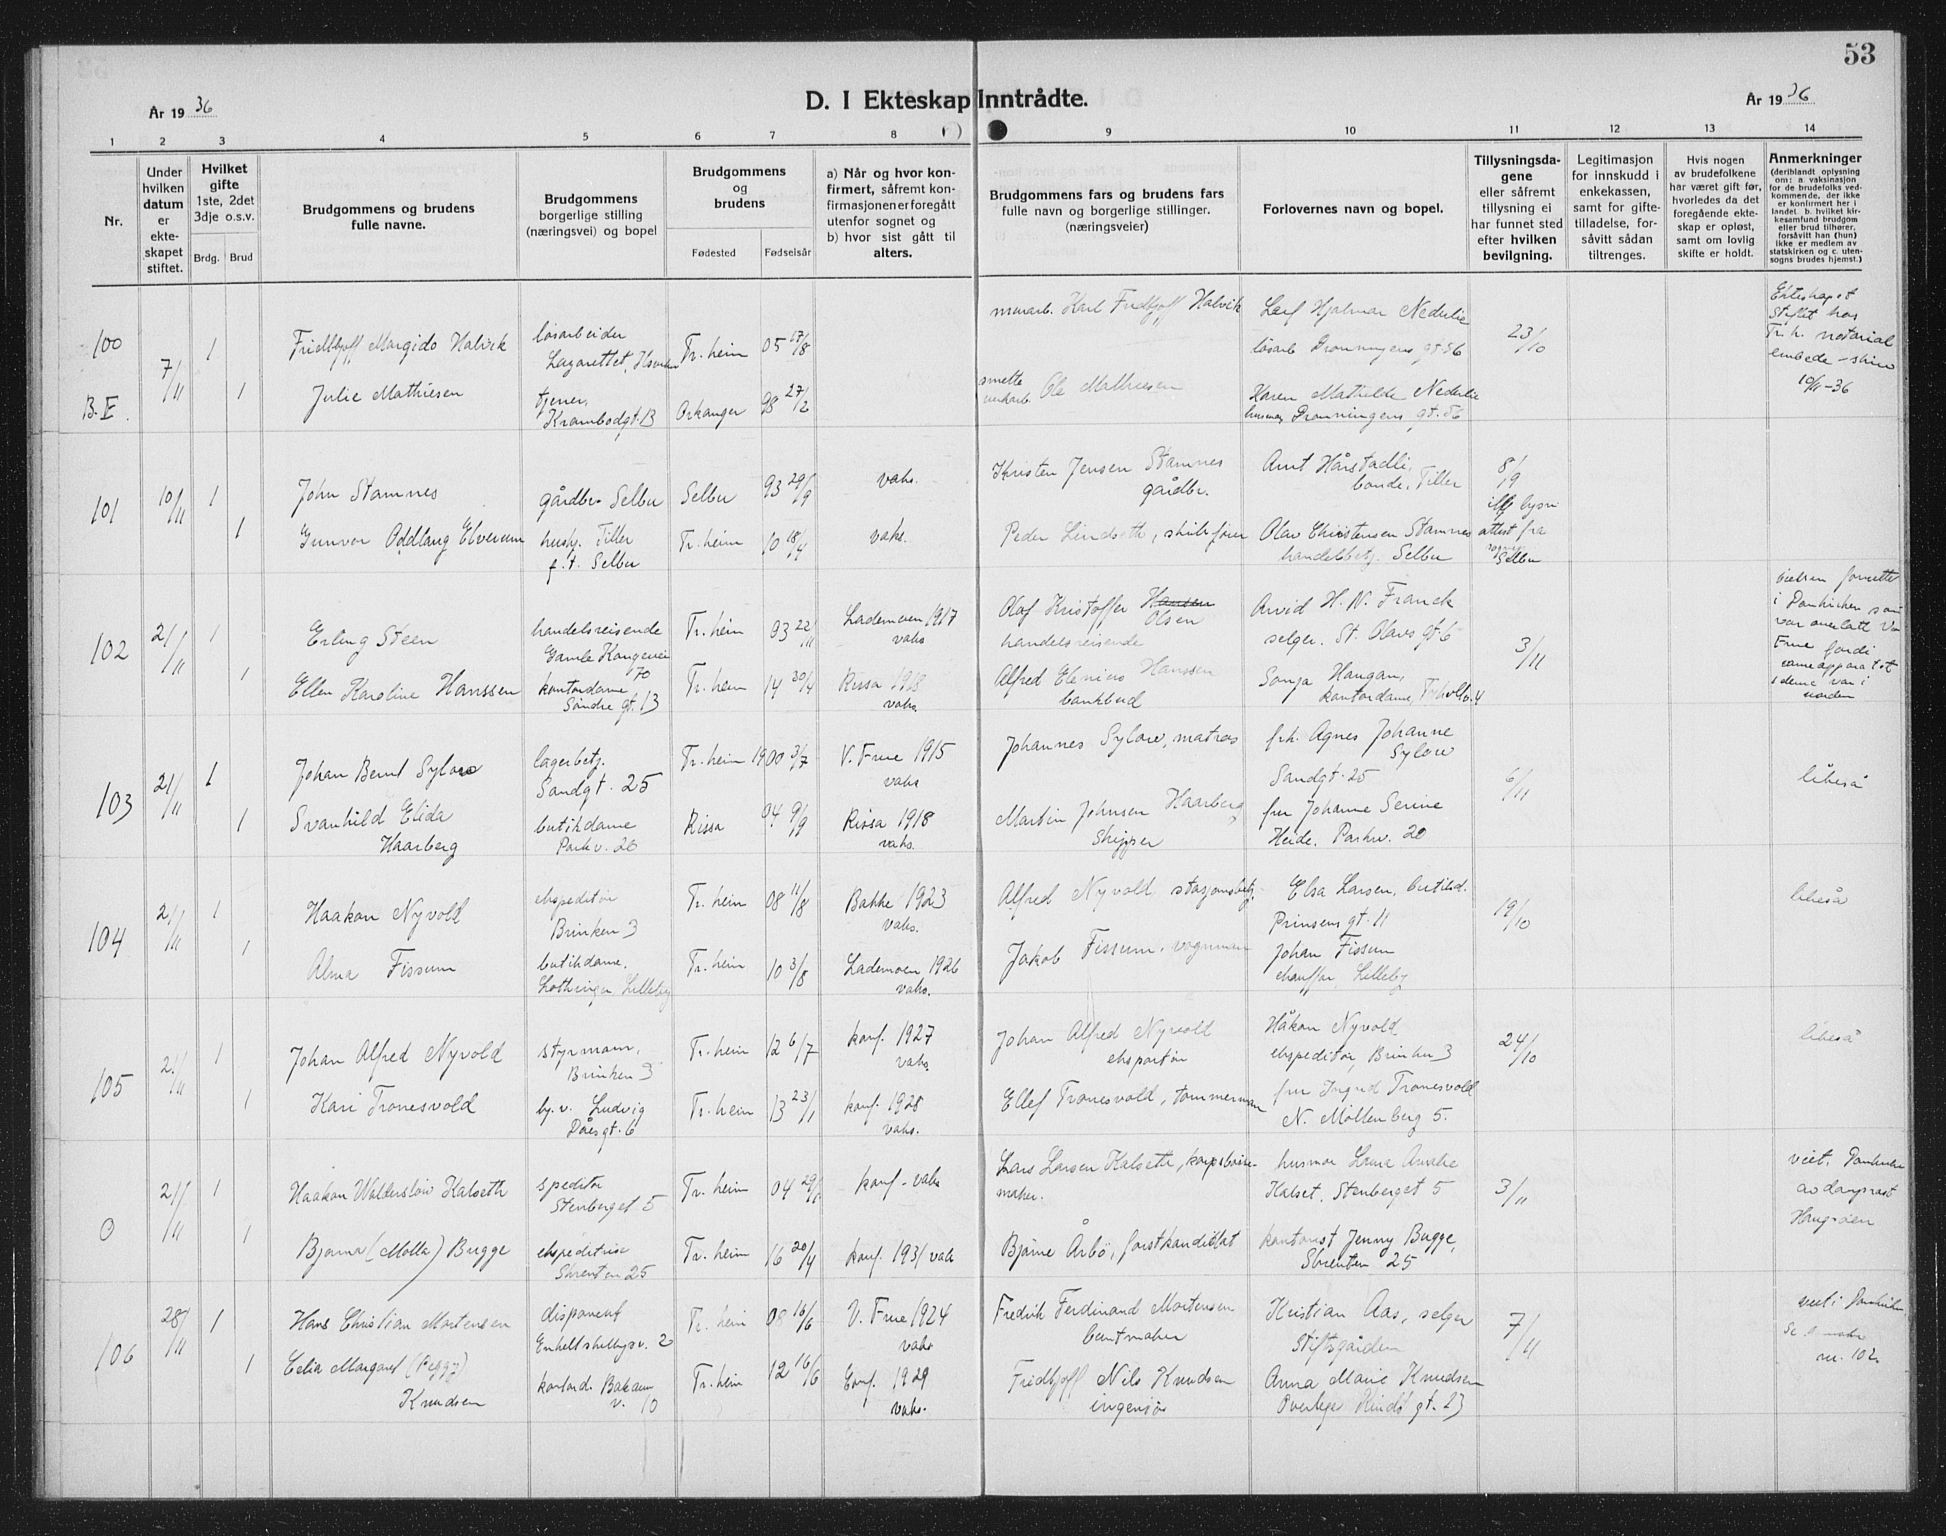 53
År 1936
D. I Ekteskap Inntrådte.
År 1936
1 2 3 4 5 6 7 8 9 10 11 12 13 14
Nr.
Under hvilken datum er ekteskapet stiftet.
Hvilket gifte 1ste, 2det 3dje o.s.v.
Brdg. Brud
Brudgommens og brudens fulle navne.
Brudgommens borgerlige stilling (næringsvei) og bopel
Brudgommens og brudens
Fødested Fødselsår
a) Når og hvor konfirmert, såfremt konfirmasjonen er foregått utenfor sognet og b) hvor sist gått til alters.
Brudgommens fars og brudens fars fulle navn og borgerlige stillinger. (næringsveier)
Forlovernes navn og bopel.
Tillysningsdagene eller såfremt tillysning ei har funnet sted efter hvilken bevilgning.
Legitimasjon for innskudd i enkekassen, samt for giftetilladelse, forsåvitt sådan tiltrenges.
Hvis nogen av brudefolkene har været gift før, hvorledes da det foregående ekteskap er opløst, samt om lovlig skifte er holdt.
Anmerkninger (deriblandt oplysning om: a. vaksinasjon for de brudefolks vedkommende, der ikke er konfirmert her i landet. b. hvilket kirkesamfund brudgom eller brud tilhører, forsåvitt han (hun) ikke er medlem av statskirken og c. utensogns brudes hjemst.)
100 7/11 1 Fridthjof Margido Halvik løsarbeider Lazarettet, Tr.heim 05 17/8 murarb. Karl Fridtjof Halvik Leif Hjalmar Nederlie løsarb Dronningens gt. 56 23/10 Ekteskapet stiftet hos Tr.h. notarial embede 10/11-36
B.E. 1 Julie Mathiesen tjener, Krambodgt. 13 Orkanger 98 27/2 Ole Mathiesen Karen Mathilde Nederlie husmor Dronningens gt. 56
101 10/11 1 John Stamnes gårdbr. Selbu Selbu 93 29/9 vaks. Kristen Jensen Stamnes gårdbr. Arnt Hårstadli, bonde, Tiller 8/9 attest fra Selbu
1 Gunvor Oddlaug Elverum hush. Tiller f.t. Selbu Tr.heim 10 18/4 vaks. Peder Lindseth, Olav Christensen Stamnes handelsbetj. Selbu
102 21/11 1 Erling Steen handelsreisende Gamle Kongevei 70 Tr.heim 93 22/11 Lademoen 1917 vaks Olaf Kristoffer Hansen Olsen handelsreisende Arvid H. N. Franck selger. St. Olavs gt. 6 3/11 vielsen forrettet i Domkirken som
1 Ellen Karoline Hanssen kontordame Søndre gt. 13 Tr.heim 14 20/4 Rissa 1918 vaks. Alfred Hanssen bankbud Sonja Haugan, kontordame,
103 21/11 1 Johan Bernt Sylow lagerbetj. Sandgt. 25 Tr.heim 1900 3/7 V. Frue 1915 vaks Johannes Sylow, matros frk. Agnes Johanne Sylow Sandgt. 25 6/11 likeså
1 Svanhild Elida Haarberg butikdame Parkv. 20 Rissa 04 9/9 Rissa 1918 vaks. Martin Johnsen Haarberg, skipper fru Johanne Serine Heide. Parkv. 20
104 21/11 1 Haakon Nyvold ekspeditør Brinken 3 Tr.heim 08 11/8 Bakke 1923 vaks. Alfred Nyvold stasjonsbetj. Elsa Larsen, butikd. Prinsens gt. 11 19/10 likeså
1 Alma Fissum butikdame, Lothringen, Lilleby Tr.heim 10 3/8 Lademoen 1926 vaks. Jakob Fissum. vognmann Johan Fissum chauffør, Lilleby
105 21/11 1 Johan Alfred Nyvold styrmann, Brinken 3 Tr.heim 12 6/7 konf. 1927 vaks. Johan Alfred Nyvold ekspeditør Håkon Nyvold ekspeditør, Brinken 3 24/10 likeså
1 Kari Tronesvold by.v. Ludvig Dåes gt. 6 Tr.heim 13 23/1 konf. 1928 vaks. Ellef Tronesvold, tømmermann fru Ingrid Tronesvold N. Møllenberg 5.
0 21/11 1 Haakon Waldersløw Kalseth speditør Stenberget 5 Tr.heim 04 konf. - vaks Lars Larsen Kalseth, husmor Kalset, Stenberget 5 3/11 viet i Domkirken
1 Bjarna (Molla) Bugge ekspeditrise Skrenten 25 Tr.heim 16 20/4 konf. 1931 vaks Bjarne Årbo, forstkandidat kontorist Jenny Bugge, Skrenten 25
106 28/11 1 Hans Christian Mortensen disponent 2 Tr.heim 08 16/6 V. Frue 1924 vaks Fredrik Ferdinand Mortensen buntmaker Kristian Aas, selger Stiftsgården 7/11 viet i Domkirken nr. 102.
1 Celia Margaret (Peggy) Knudsen kontord. Bakaunv. 10 Tr.heim 12 16/6 konf. 1929 vaks. Fridtjoff Nils Knudsen ingeniør Anna Marie Knudsen Overlege Kindts gt. 23